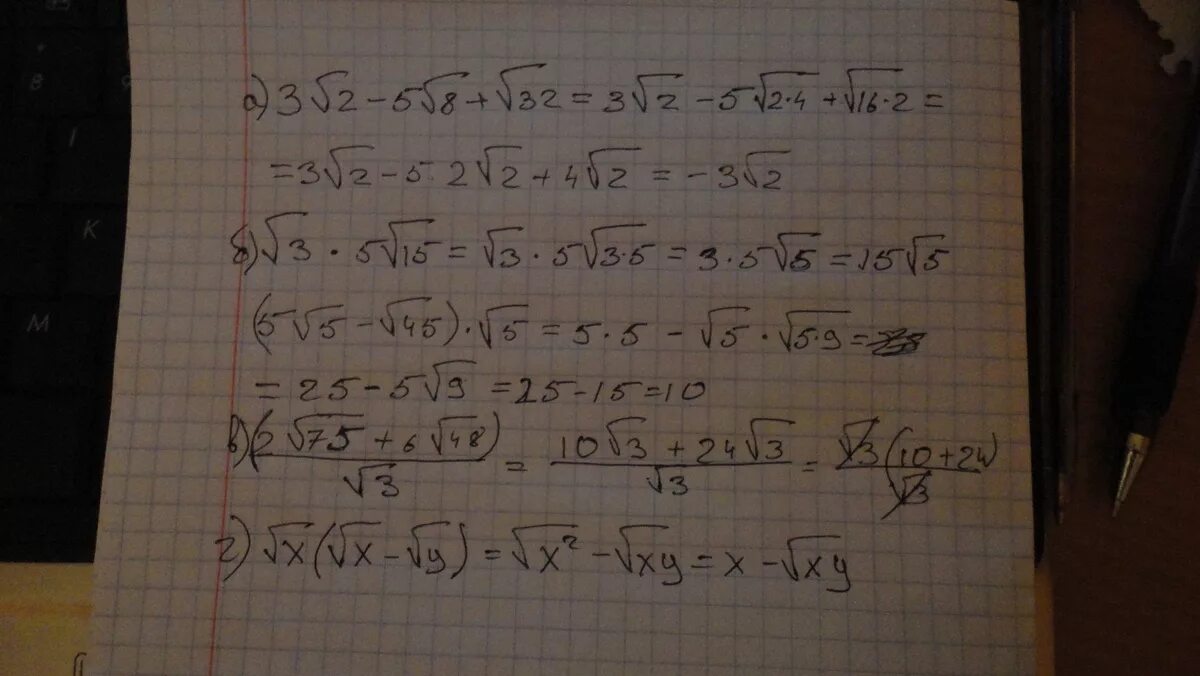 а) 3√2 - 5√8 + √32 = 3√2 - 5√2·4 + √16·2 =
= 3√2 - 5 2√2 + 4√2 = -3√2
б) √3 · 5√15 = √3 · 5√3·5 = 3·5√5 = 15√5
(5√5 - √45)·√5 = 5·5 - √5 · √5·9 =
= 25 - 5√9 = 25 - 15 = 10
в) (2√75 + 6√48)/√3 = (10√3 + 24√3)/√3 = √3(10+24)/√3
г) √x(√x - √y) = √x² - √xy = x - √xy
К
М
8